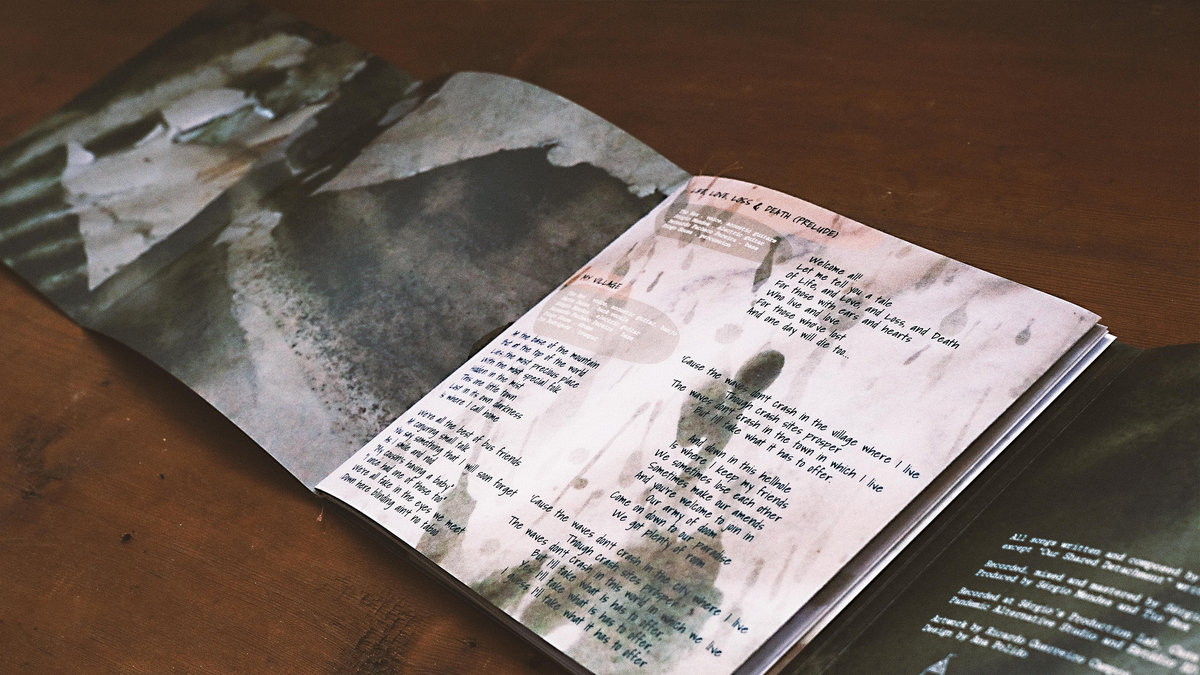 LIFE, LOVE, LOSS & DEATH (PRELUDE)
Welcome all!
Let me tell you a tale
of Life, and Love, and Loss, and Death
For those with ears and hearts
Who live and love
For those who've lost
And one day will die too...
MY VILLAGE
At the base of the mountain
But at the top of the world
Lies the most precious place
With the most special folk
Hidden in the mist
This one little town
Lost in its own darkness
Is where I call home
We're all the best of bus friends
At conjuring small talk
You say something that I will soon forget
As I smile and nod
"My cousin's having a baby,
I once had one of those too"
We're all fake in the eyes we meet
Down here blinding ain't no taboo
'Cause the waves don't crash in the village where I live
Though crash sites prosper
The waves don't crash in the town in which I live
But I'll take what it has to offer.
And down in this hellhole
Is where I keep my friends
We sometimes lose each other
Sometimes make our amends
And you're welcome to join in
Our army of doom
Come on down to our paradise
We got plenty of room
'Cause the waves don't crash in the city where I live
Though crash sites prosper
The waves don't crash in this world in which we live
But I'll take what is has to offer.
Yes I'll take what is has to offer,
I guess I'll take what it has to offer
All songs written and composed by
except "Our Shared Detachment"
Recorded, mixed and mastered by
Produced by Sérgio Mendes and The
Recorded at Sérgio's Production Lab,
Pandemic Alternative Studio and
Artwork by Ricardo
Design by Ana Polido